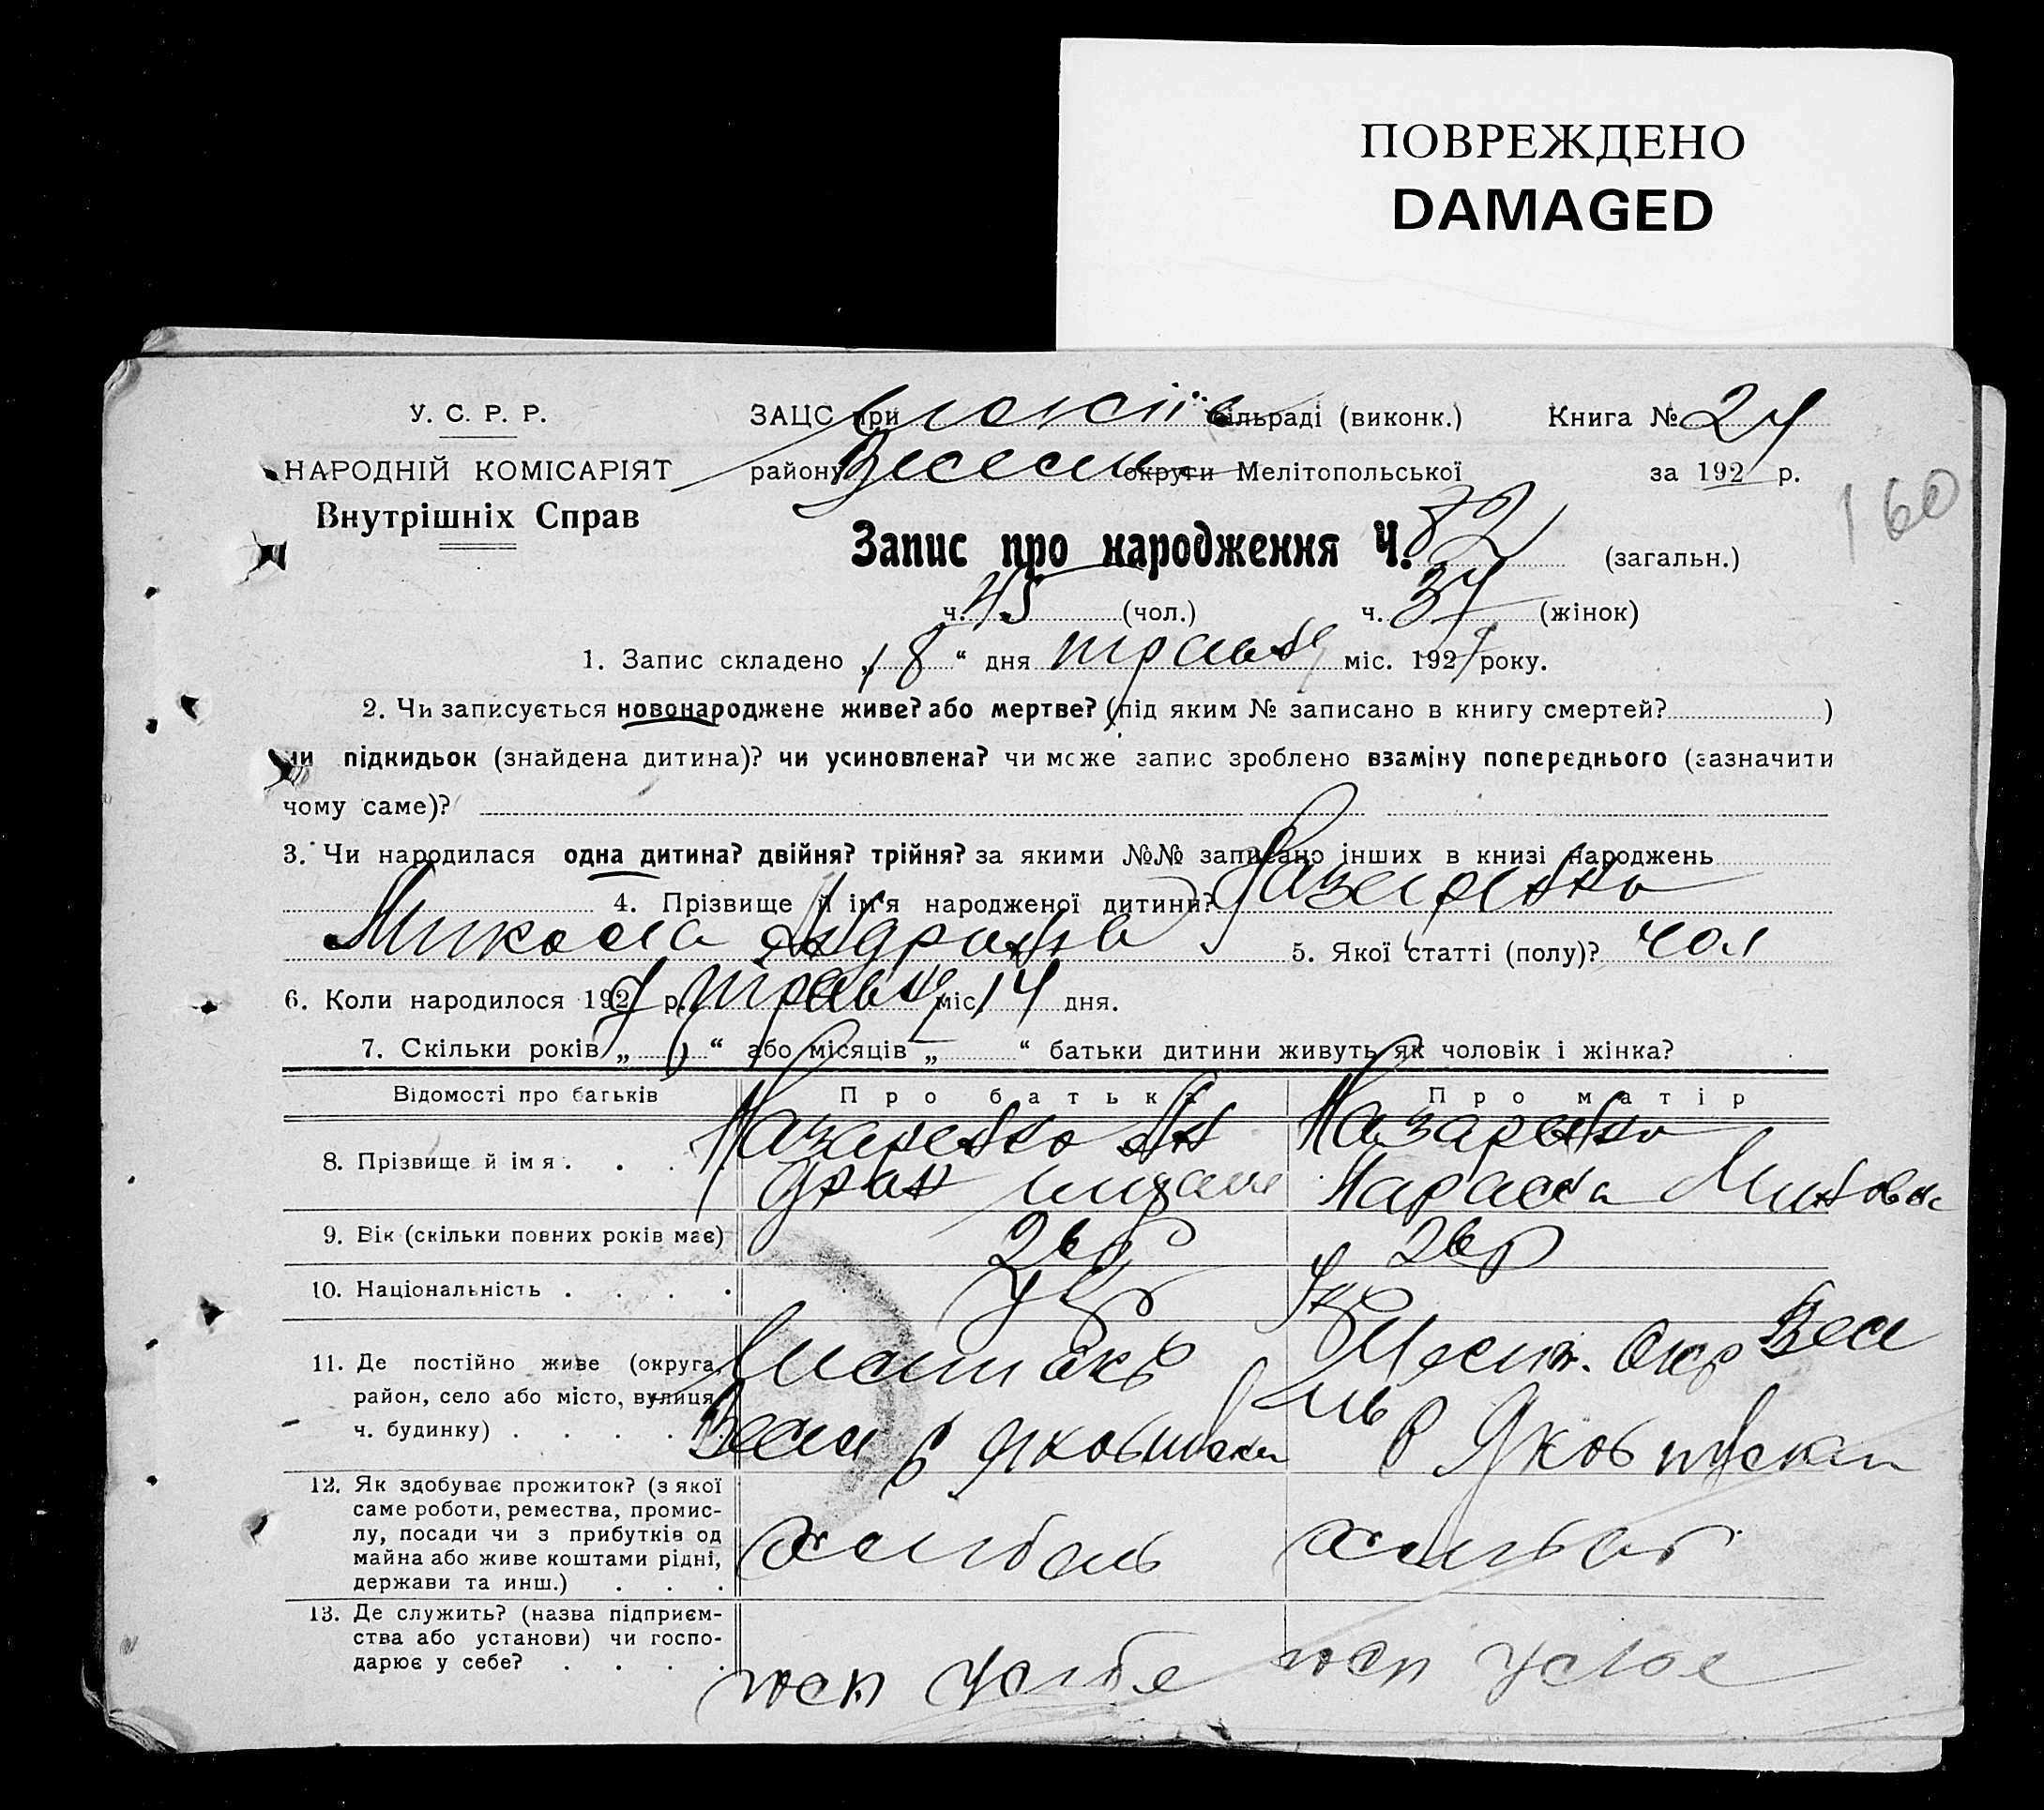 ПОВРЕЖДЕНО
DAMAGED
У. С. Р. Р.
НАРОДНІЙ КОМІСАРІЯТ
Внутрішніх Справ
ЗАЦС при сільраді (виконк.) Книга № 24
району округи Мелітопольської за 192 р.
160
Запис про народження Ч. 82 (загальн.)
ч. 45 (чол.) ч. 37 (жінок)
1. Запис складено „18“ дня травня міс. 1927 року.
2. Чи записується новонароджене живе? або мертве? (під яким № записано в книгу смертей? )
чи підкидьок (знайдена дитина)? чи усиновлена? чи може запис зроблено взаміну попереднього (зазначити
чому саме)?
3. Чи народилася одна дитина? двійня? трійня? за якими №№ записано інших в книзі народжень
4. Прізвище й ім'я народженої дитини? Назаренко
Микола 5. Якої статті (полу)? чол
6. Коли народилося 1927 р. травня міс. 14 дня.
7. Скільки років „ “ або місяців „ “ батьки дитини живуть як чоловік і жінка?
Відомості про батьків Про батька Про матір
8. Прізвище й ім'я . . . . Назаренко Ан Назаренко
Параска
9. Вік (скільки повних років має) 26р 26р
10. Національність . . . . Укр Укр
11. Де постійно живе (округа, Меліт окр Меліт. Окр Весе
район, село або місто, вулиця,
ч. будинку) . . . . Весел р
12. Як здобуває прожиток? (з якої
саме роботи, ремества, промис-
лу, посади чи з прибутків од
майна або живе коштами рідні,
держави та инш.) . . . хлібороб
13. Де служить? (назва підприєм-
ства або установи) чи госпо-
дарює у себе? . . . . госп у себе госп у себе